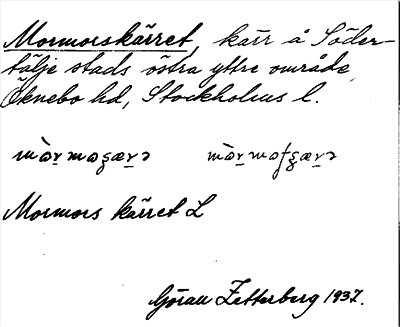 Mormorskärret, kärr å Söder-
tälje stads östra yttre område
Öknebo hd, Stockholms l.
Mormors kärret L
Göran Zetterberg 1937.